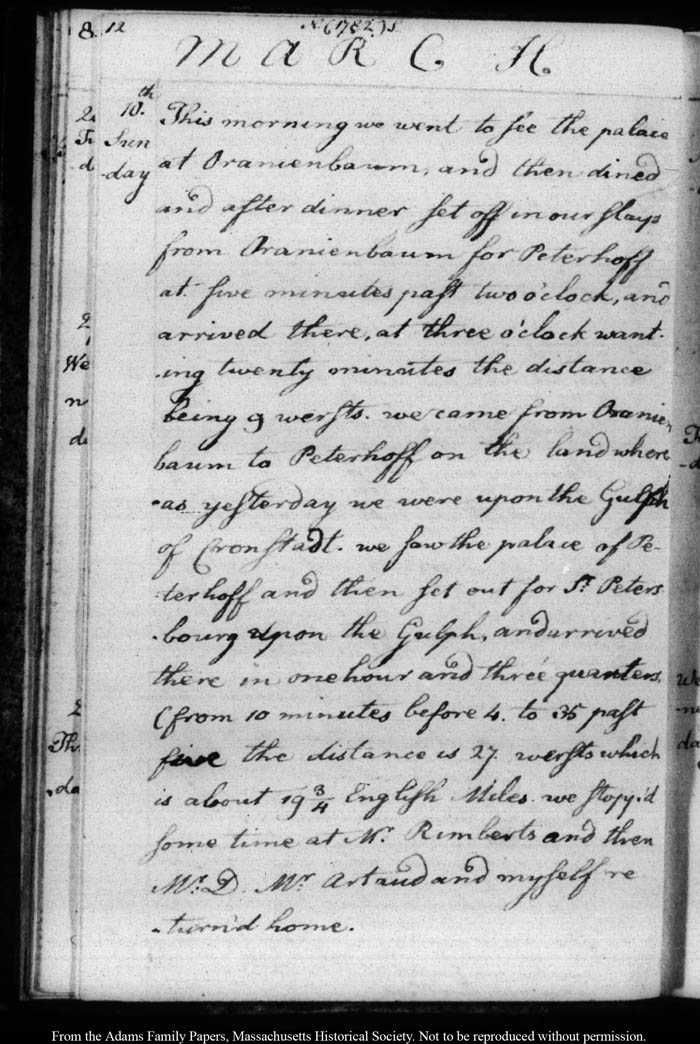 8. 12
N. (1782.) S.
MARCH.
10.th This morning we went to see the palace
Sun
-day at Oranienbaum, and then dined
and after dinner set off in our slays
from Oranienbaum for Peterhoff
at five minutes past two o'clock, and
arrived there, at three o'clock want-
-ing twenty minutes the distance
being 9 wersts. we came from Oranien
baum to Peterhoff on the land where
-as yesterday we were upon the Gulph
of Cronstadt. we saw the palace of Pe-
-terhoff and then set out for St. Peters
-bourg upon the Gulph, and arrived
there in one hour and three quarters.
(from 10 minutes before 4. to 35 past
five the distance is 27. wersts which
is about 19 3/4 English Miles. we stopp'd
some time at Mr. Rimberts and then
Mr. D. Mr. Artaud and myself re
-turn'd home.
2
We
n
d
Th.
da
From the Adams Family Papers, Massachusetts Historical Society. Not to be reproduced without permission.